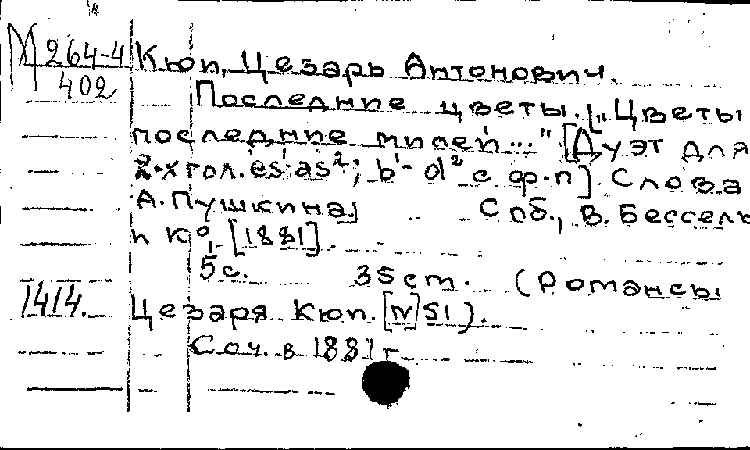 М 264-4 Кюи, Цезарь Антонович.
402 Последние цветы. ["Цветы
последние милей..." [Дуэт для
2-х гол. es'-as²; b'-d² с ф-п]. Слова
А. Пушкина] Спб., В. Бессель
и К°, [1881].
5 с. 35 cm. (Романсы
1414. Цезаря Кюи. [N51].
Соч. в 1881 г